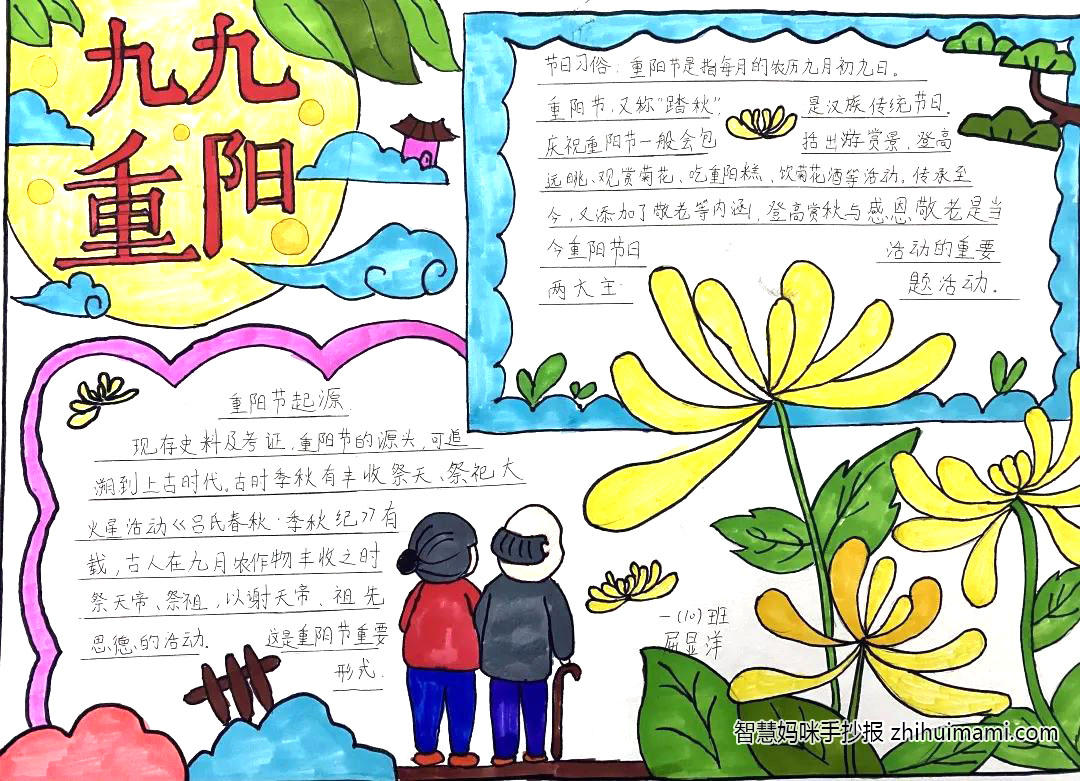 九九
重阳
节日习俗：重阳节是指每月的农历九月初九日。
重阳节，又称"踏秋"，是汉族传统节日.
庆祝重阳节一般会包括出游赏景，登高
远眺、观赏菊花、吃重阳糕、饮菊花酒等活动，传承至
今，又添加了敬老等内涵，登高赏秋与感恩敬老是当
今重阳节日活动的重要
两大主题活动.
重阳节起源
现存史料及考证，重阳节的源头，可追
溯到上古时代。古时季秋有丰收祭天、祭祀大
火星活动《吕氏春秋·季秋纪》有
载，古人在九月农作物丰收之时
祭天帝、祭祖，以谢天帝、祖先
恩德的活动.这是重阳节重要
形式.
一(10)班
屈显洋
智慧妈咪手抄报 zhihuimami.com